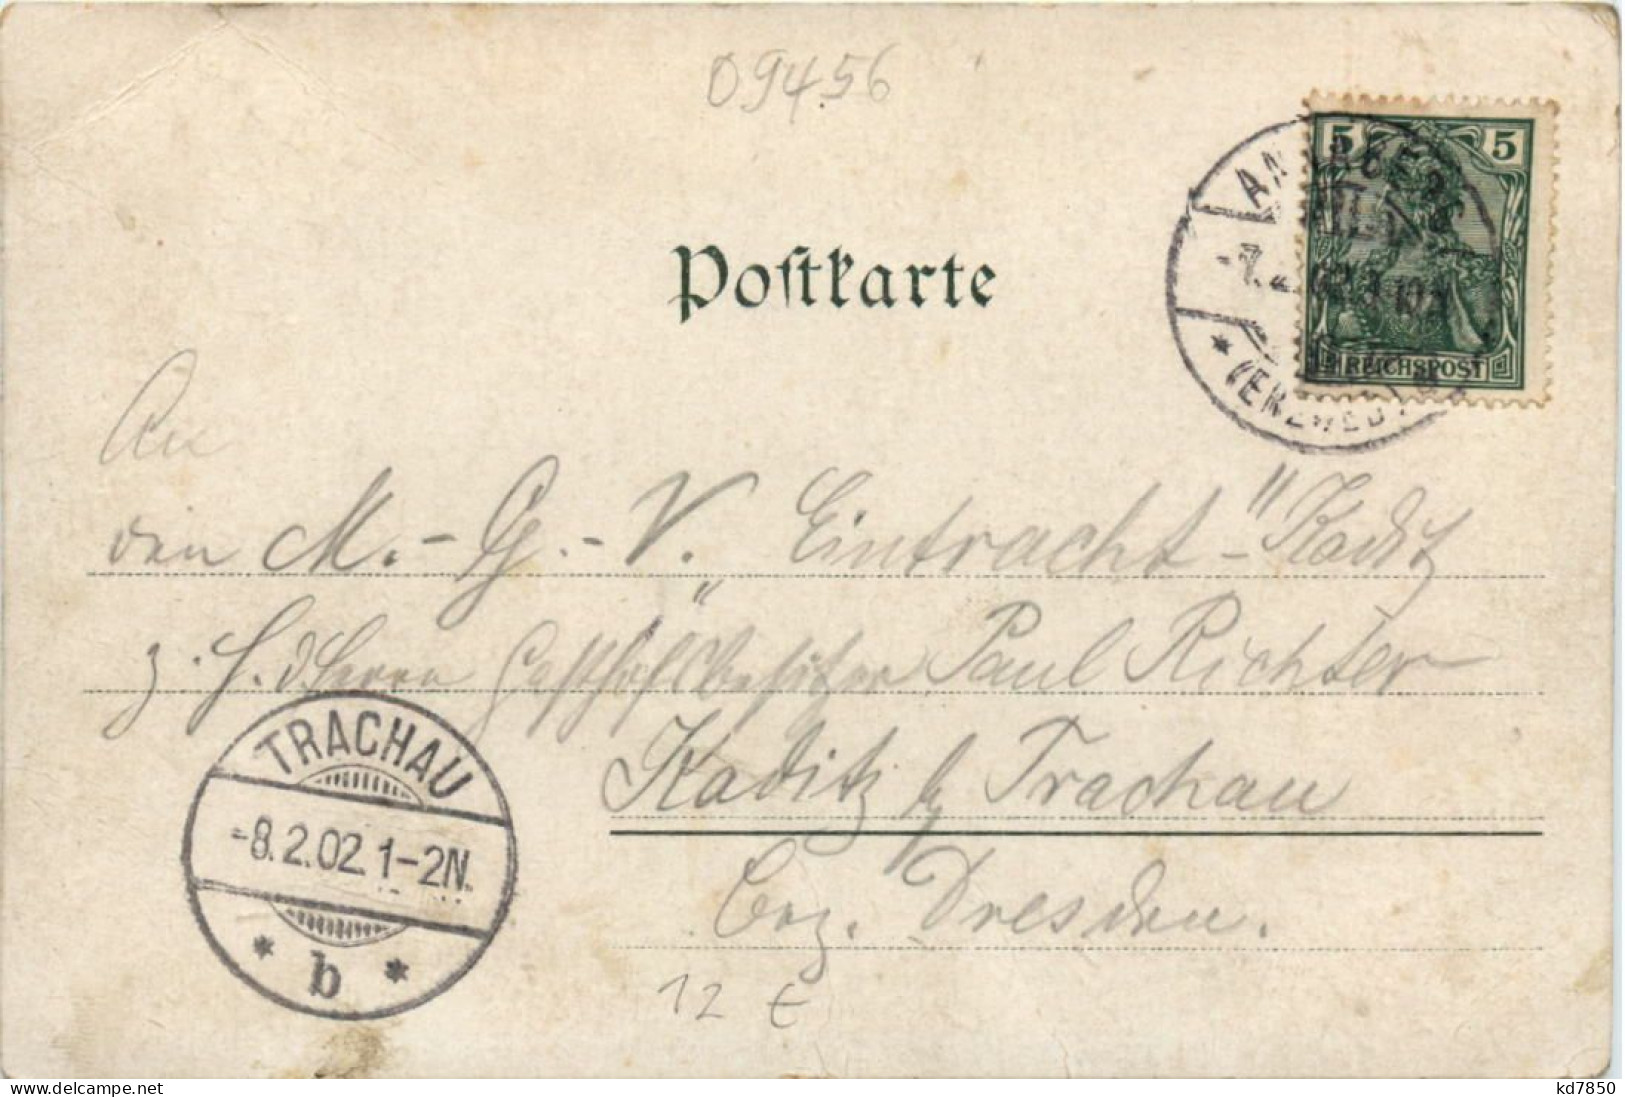 09456
5 5
REICHSPOST
ANNABERG
-7.2.02
* (ERZGEB.)
Postkarte
An
den M.-G.-V. „Eintracht-" Kaditz
z. H. d Herrn Gasthofsbesitzer Paul Richter
Kaditz b/ Trachau
Bez. Dresden.
TRACHAU
-8.2.02. 1-2N.
* b *
12 €
www.delcampe.net
kd7850